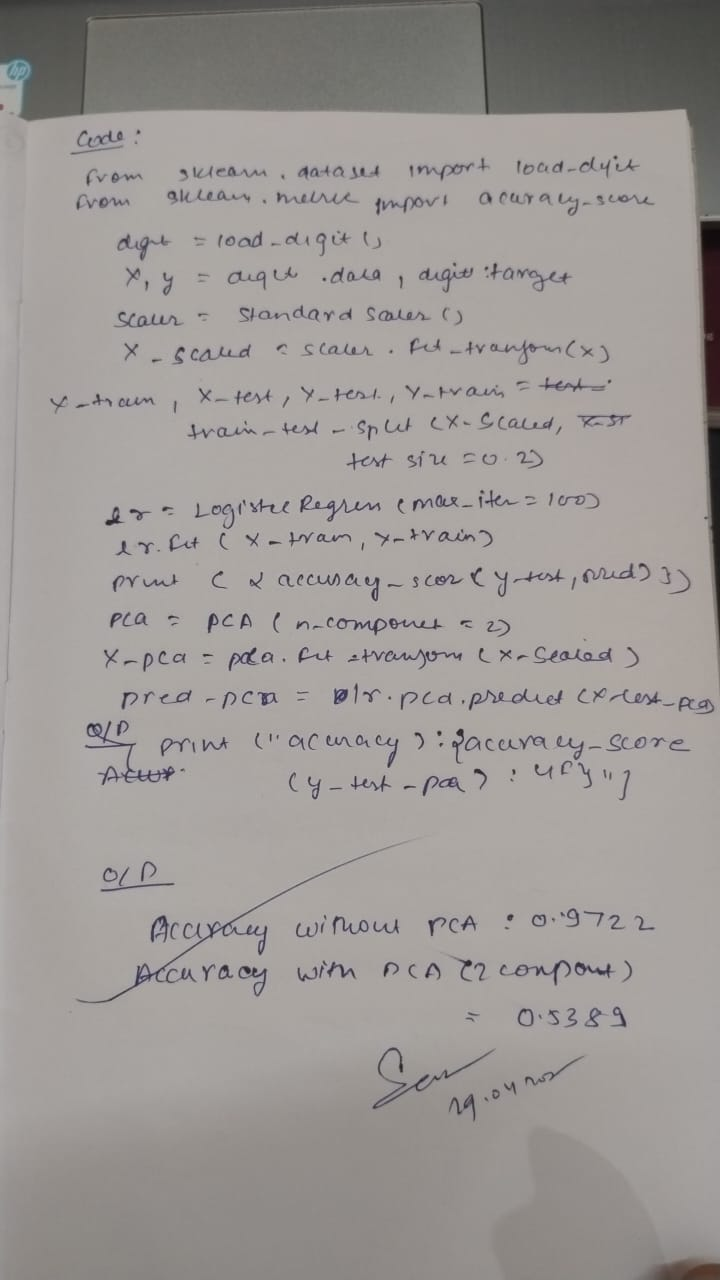 hp
Code:
from sklearn. dataset import load-dyit
from sklearn. metric import acuracy-score
digit = load-digit()
X, y = digit .data, digit.target
scaler = Standard Scaler ()
X - scaled = scaler. fit - tranform(x)
X-train, X-test, Y-test, Y-train = test
train-test-split (X-Scaled,
test size = 0.2)
lr = Logistic Regren (max-iter = 100)
lr. fit (X-train, Y-train)
print ( accuray-scor (y-test, pred) })
PCA = PCA (n-component = 2)
X-pca = pca. fit -tranjom (X-Scaled)
pred-pca = lr. pca. predict (X-test-pca)
O/P print ("acuracy ) : {acuracy-score
(y-test-pca) : 4f}")
O/P
Accuracy without PCA : 0.9722
Accuracy with PCA (2 conpont)
= 0.5389
29.04